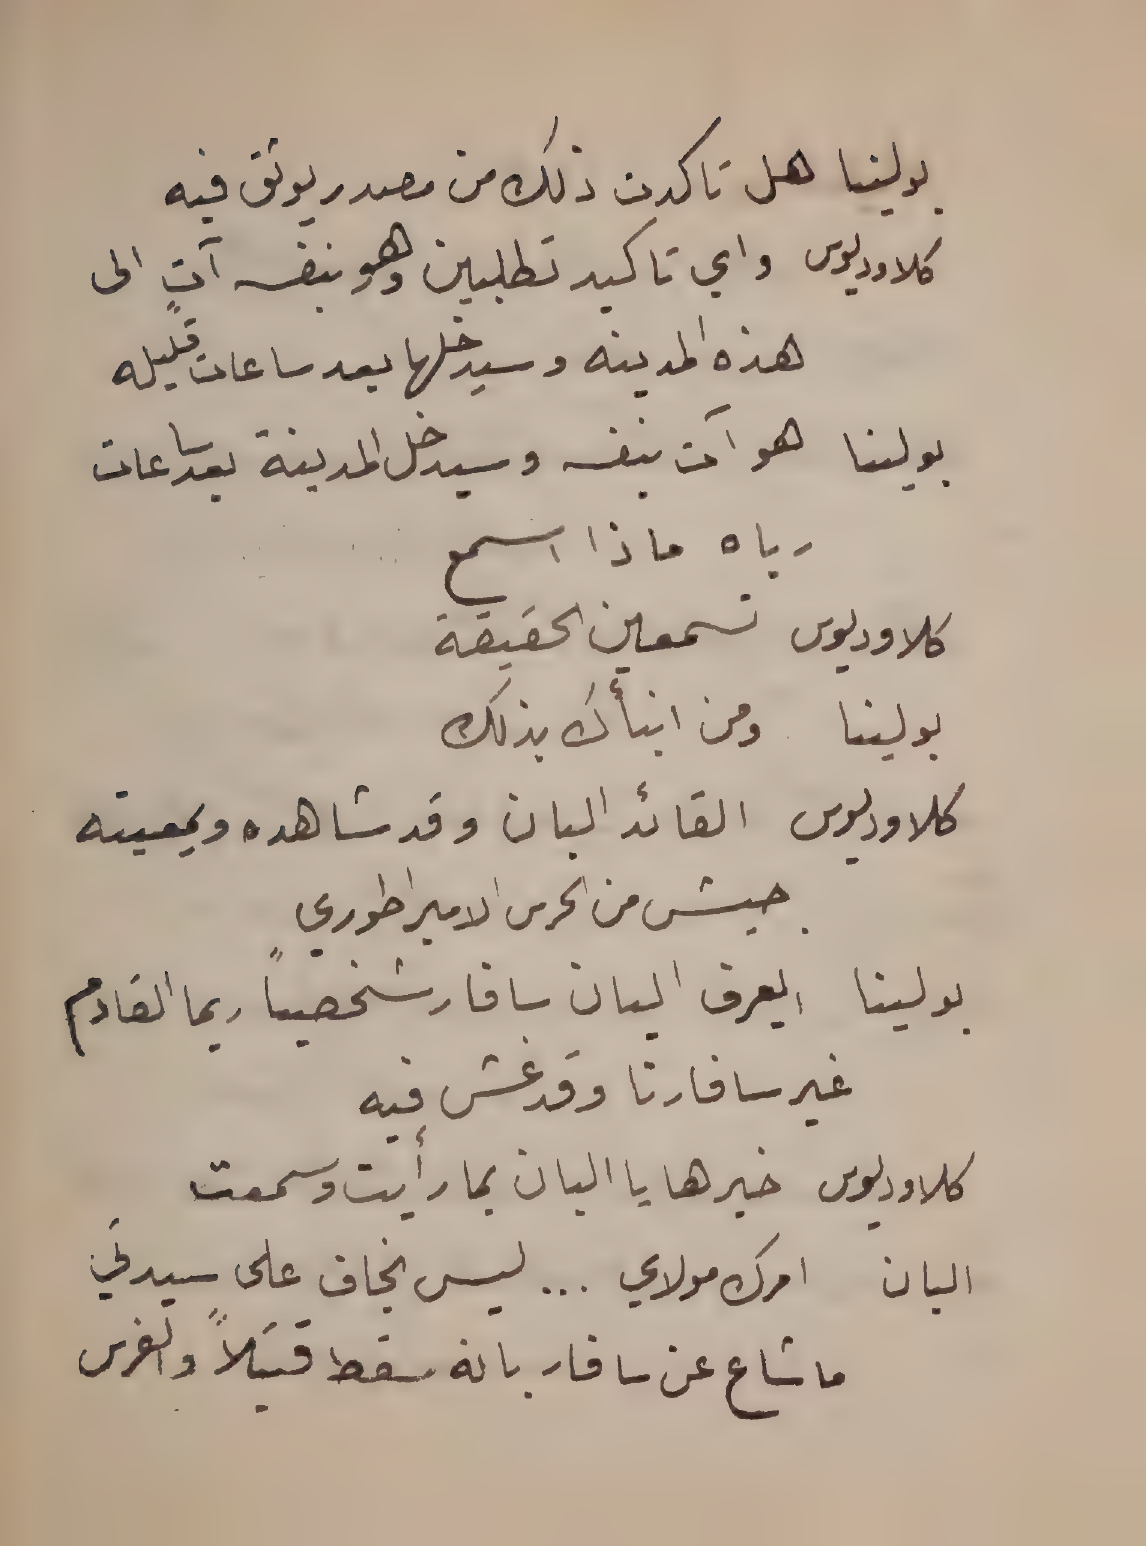 بولينا هل تاكدت ذلك من مصدر يوثق فيه
كلاوديوس واي تاكيد تطلبين وهو بنفسه آتٍ الى
هذه المدينه وسيدخلها بعد ساعات قليله
بولينا هو آت بنفسه وسيدخل المدينة بعد ساعات
رباه ماذا اسمع
كلاوديوس تسمعين الحقيقة
بولينا ومن انبأك بذلك
كلاوديوس القائد البان وقد شاهده وبمعيته
جيش من الحرس الامبراطوري
بولينا ايعرف البان سافار شخصياً ربما القادم
غير سافارنا وقد غش فيه
كلاوديوس خبرها يا البان بما رأيت وسمعت
البان امرك مولاي ... ليس بخاف على سيدتي
ما شاع عن سافار بانه سقط قتيلاً والفرس